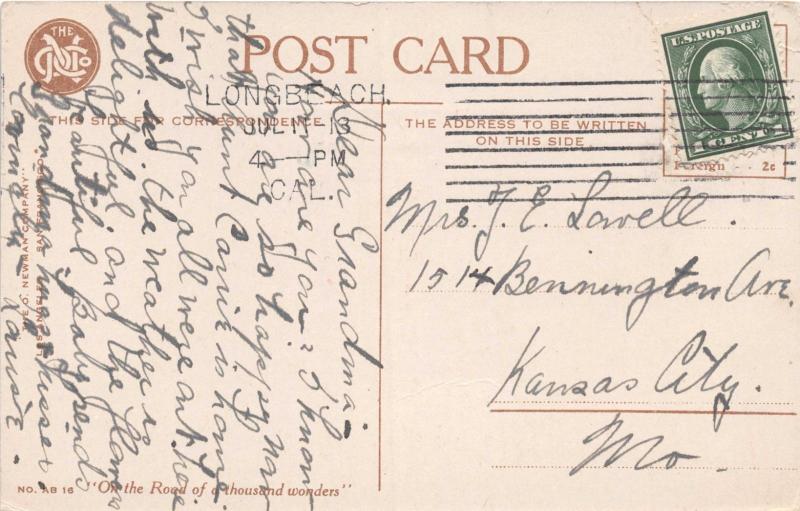 THE
NCo
POST CARD
U.S. POSTAGE
1 CENT 1
LONG BEACH,
JUL 11 13
4 - PM
CAL.
THIS SIDE FOR CORRESPONDENCE
THE ADDRESS TO BE WRITTEN
ON THIS SIDE
Foreign 2c
Mrs. J. E. Lowell.
1514 Bennington Ave.
Kansas City.
Mo.
Dear Grandma-
How are you? I know
you are so happy now
that Aunt Carrie is home.
I wish you all were out here
with us. The weather is
delightful, and the flowers
beautiful. Baby sends
Grandma
Lovingly - Louise.
THE O. NEWMAN COMPANY
LOS ANGELES SAN FRANCISCO
NO. AB 16 "On the Road of a thousand wonders"